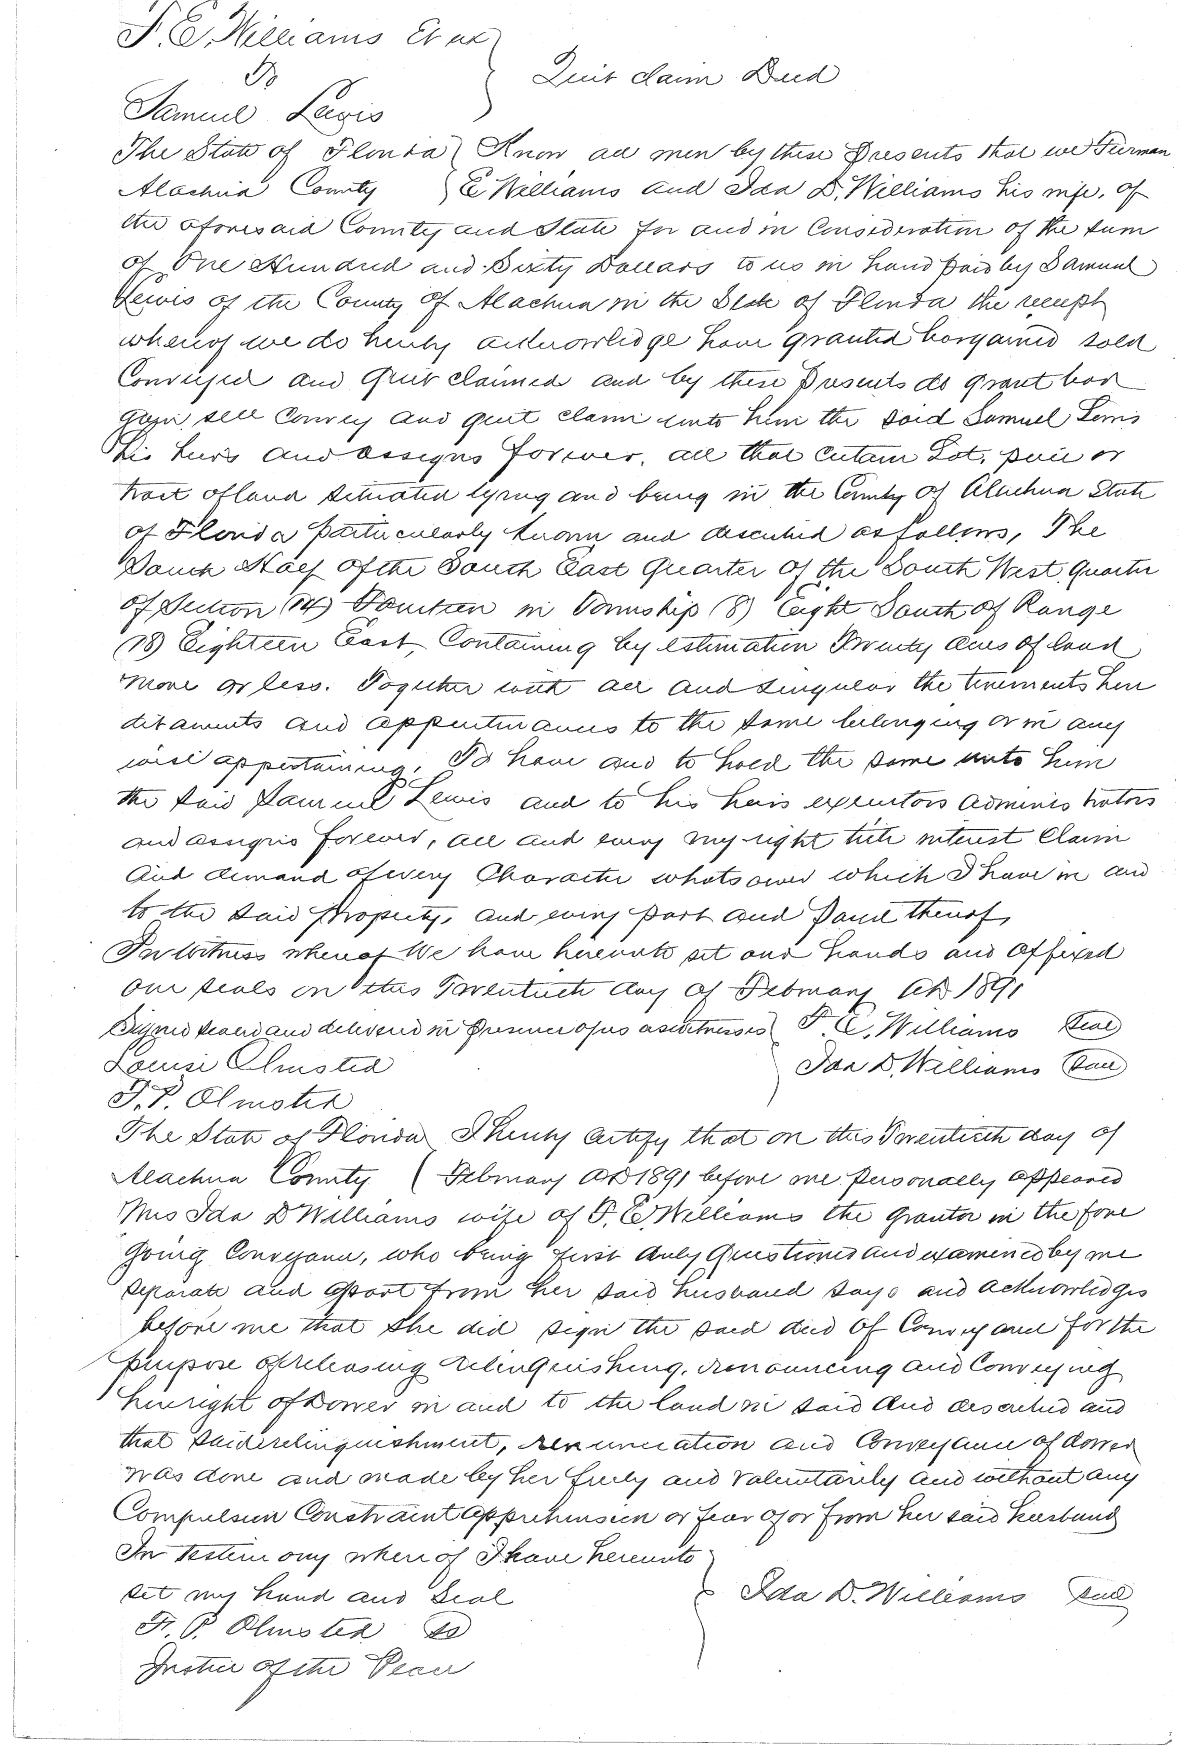 F. E. Williams Et ux
To
Quit claim Deed
Samuel Lewis
The State of Florida Know all men by these Presents that we Furman
Alachua County E Williams and Ida D. Williams his wife, of
the aforesaid County and State for and in Consideration of the sum
of One Hundred and Sixty Dollars to us in hand paid by Samuel
Lewis of the County of Alachua in the State of Florida the receipt
whereof we do hereby acknowledge have granted bargained sold
Conveyed and Quit claimed and by these Presents do grant bar
gain, sell Convey and quit claim unto him the said Samuel Lewis
his heirs and assigns forever, all that certain Lot, piece or
tract of land situated lying and being in the County of Alachua State
of Florida particularly known and described as follows, The
South Half of the South East Quarter of the South West Quarter
of Section (14) Fourteen in Township (8) Eight South of Range
(18) Eighteen East, Containing by estimation Twenty Acres of land
more or less. Together with all and singular the tenements here
ditaments and appurtenances to the same belonging or in any
wise appertaining, To have and to hold the same unto him
the said Samuel Lewis and to his heirs executors adminis trators
and assigns forever, all and every my right title interest Claim
and demand of every Character whatsoever which I have in and
to the said property, and every part and Parcel thereof,
In Witness whereof We have hereunto set our hands and affixed
our seals on this Twentieth day of February AD 1891
Signed sealed and delivered in Presence of us as witnesses F. E. Williams Seal
Louise Olmsted Ida D. Williams Seal
F. P. Olmsted
The State of Florida I hereby certify that on this Twentieth day of
Alachua County February AD 1891 before me personally appeared
Mrs Ida D Williams wife of F. E Williams the grantor in the fore
going Conveyance, who being first duly Questioned and examined by me
separate and apart from her said husband says and acknowledges
before me that she did sign the said deed of Conveyance for the
purpose of releasing relinquishing, renouncing and Conveying
her right of Dower in and to the land in said deed described and
that said relinquishment, renunciation and Conveyance of dower
was done and made by her freely and voluntarily and without any
Compulsion Constraint apprehension or fear of or from her said husband
In testimony where of I have hereunto
set my hand and Seal Ida D. Williams Seal
F. P. Olmsted
Justice of the Peace